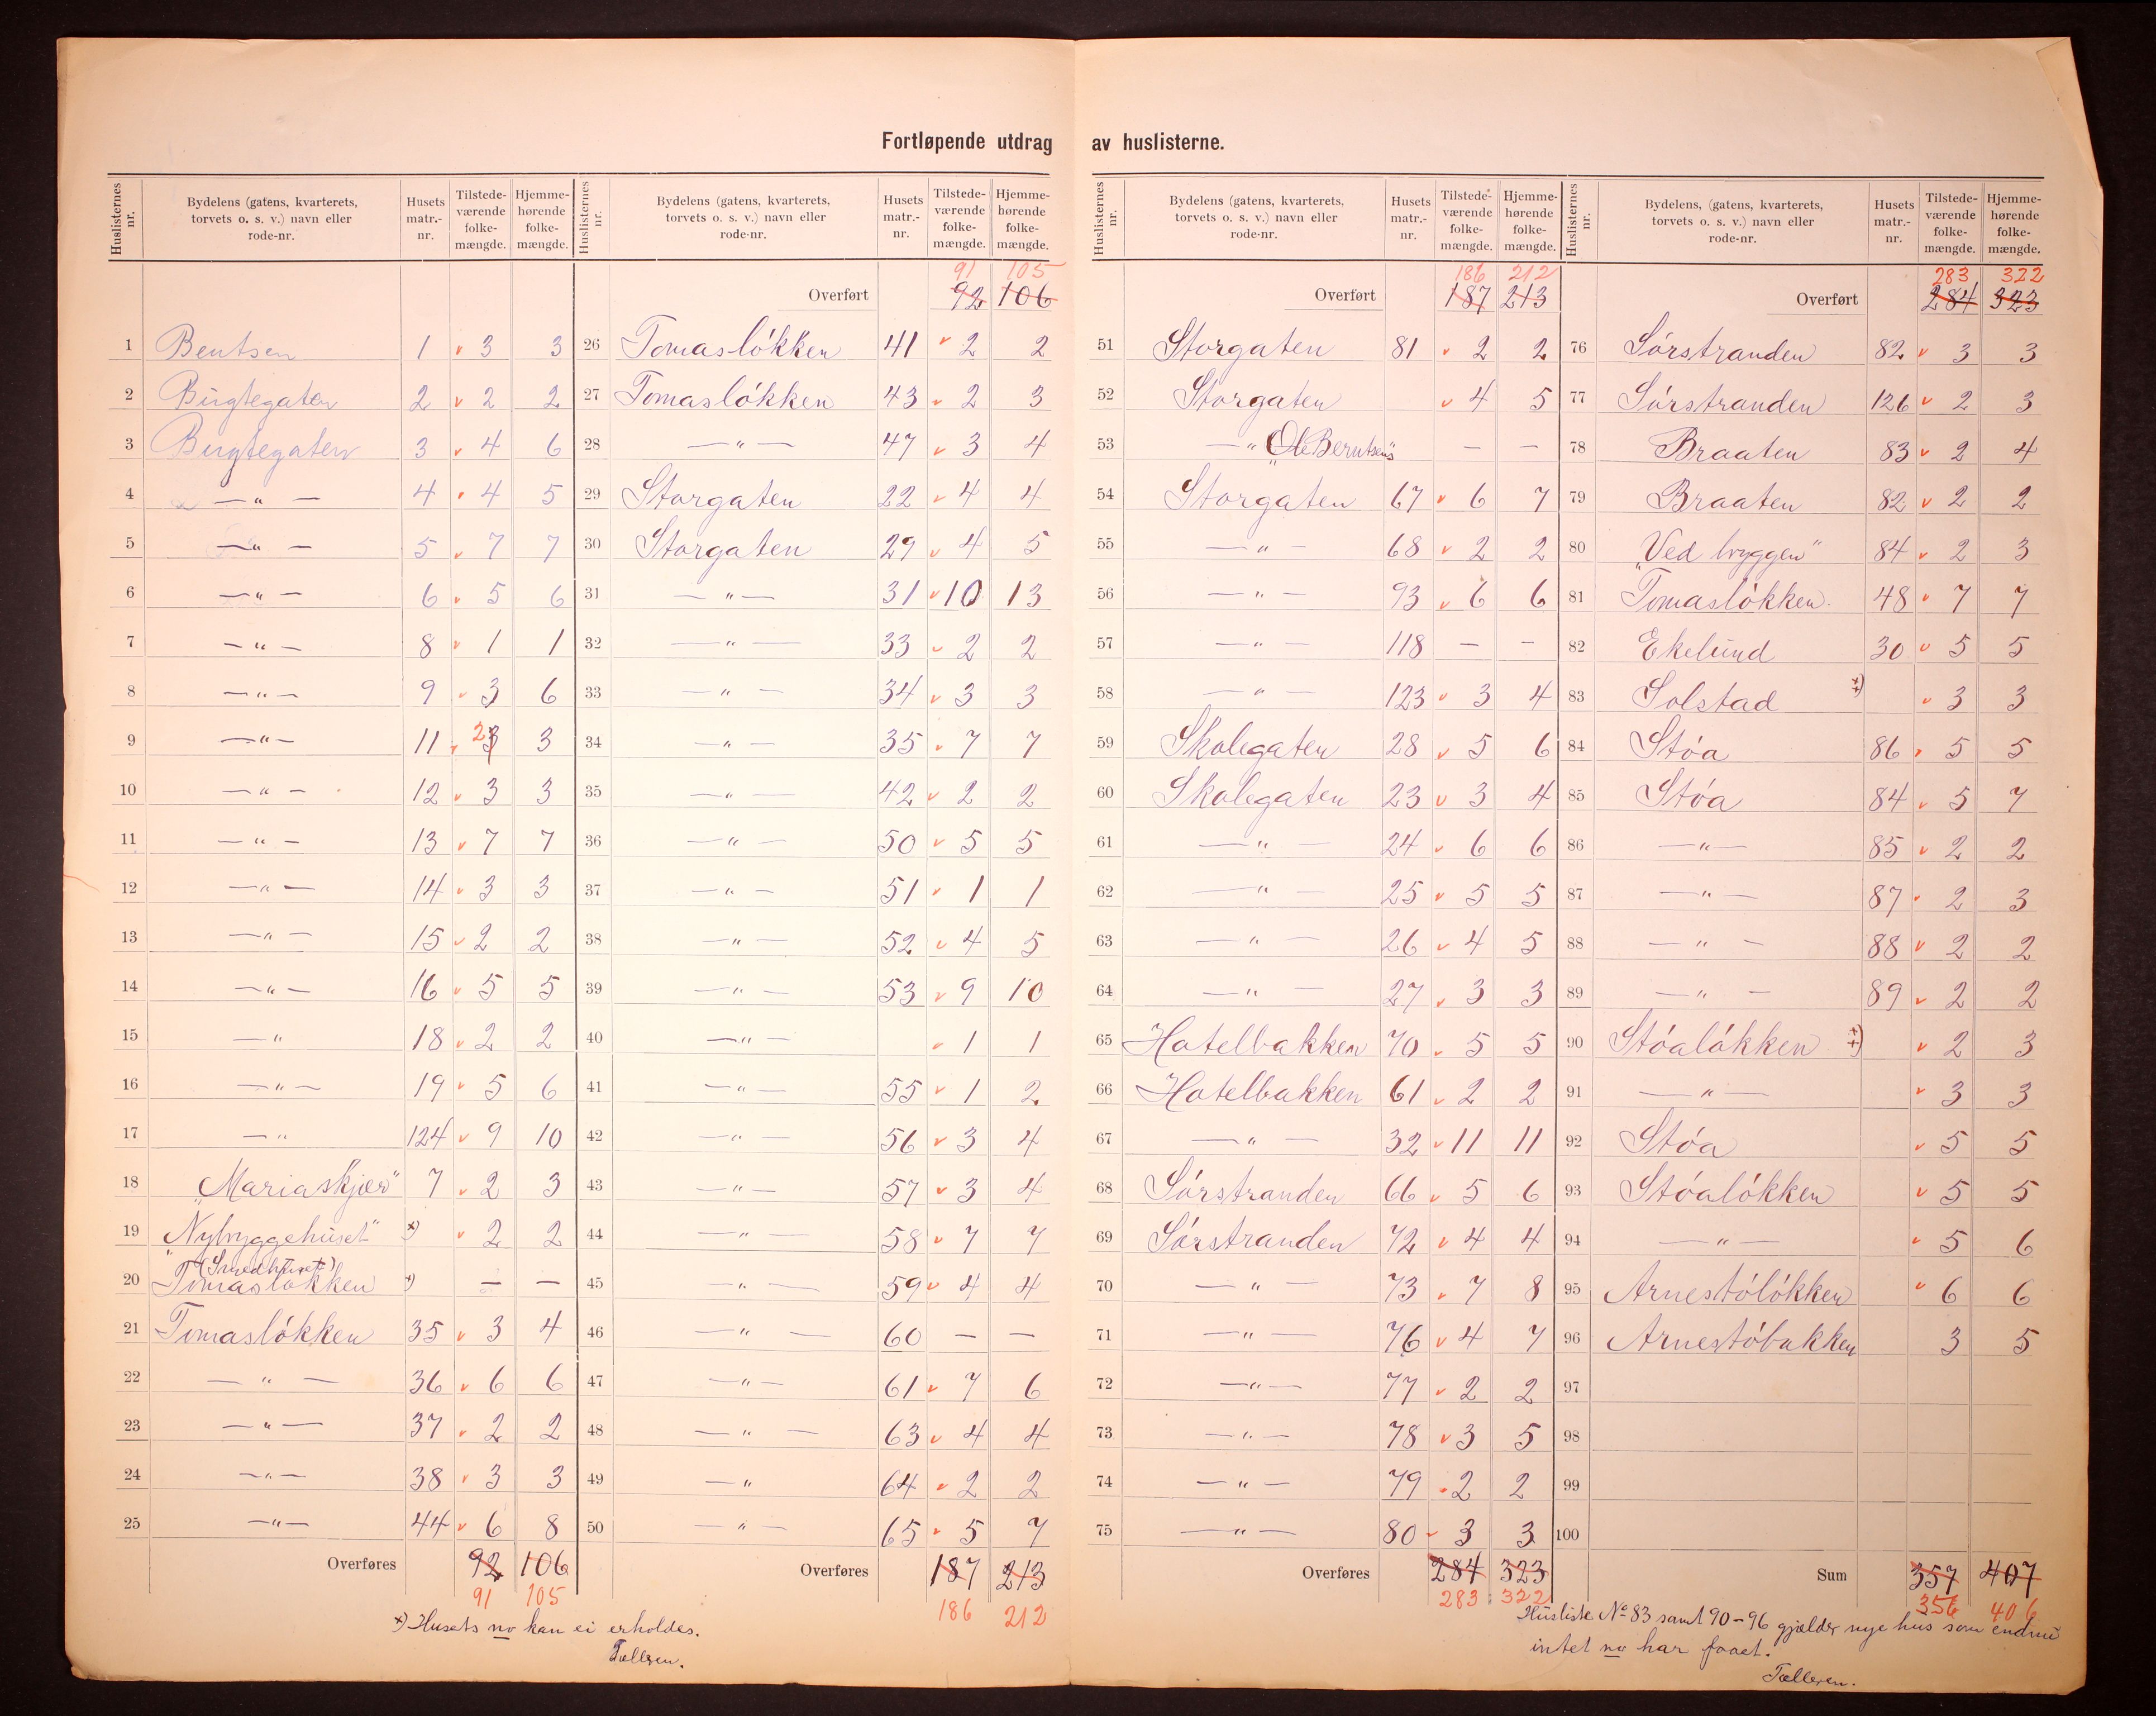 Fortløpende utdrag av huslisterne.
Huslisternes nr. | Bydelens (gatens, kvarterets, torvets o. s. v.) navn eller rode-nr. | Husets matr.-nr. | Tilstede-værende folke-mængde. | Hjemme-hørende folke-mængde.
1 Bentsen 1 v 3 3
2 Bugtegaten 2 v 2 2
3 Bugtegaten 3 v 4 6
4 — " — 4 v 4 5
5 — " — 5 v 7 7
6 — " — 6 v 5 6
7 — " — 8 v 1 1
8 — " — 9 v 3 6
9 — " — 11 v 2 3 3
10 — " — 12 v 3 3
11 — " — 13 v 7 7
12 — " — 14 v 3 3
13 — " — 15 v 2 2
14 — " — 16 v 5 5
15 — " 18 v 2 2
16 — " — 19 v 5 6
17 — " 124 v 9 10
18 „Mariaskjær" 7 v 2 3
19 „Nybryggehuset" x) v 2 2
20 (Smedhuset) Tomasløkken x) — —
21 Tomasløkken 35 v 3 4
22 — " — 36 v 6 6
23 — " — 37 v 2 2
24 — " — 38 v 3 3
25 — " — 44 v 6 8
Overføres 92 106
91 105
x) Husets no kan ei erholdes.
Tælleren.
Huslisternes nr. | Bydelens (gatens, kvarterets, torvets o. s. v.) navn eller rode-nr. | Husets matr.-nr. | Tilstede-værende folke-mængde. | Hjemme-hørende folke-mængde.
91 105
Overført 92 106
26 Tomasløkken 41 v 2 2
27 Tomasløkken 43 v 2 3
28 — " — 47 v 3 4
29 Storgaten 22 v 4 4
30 Storgaten 29 v 4 5
31 — " — 31 v 10 13
32 — " — 33 v 2 2
33 — " — 34 v 3 3
34 — " — 35 v 7 7
35 — " — 42 v 2 2
36 — " — 50 v 5 5
37 — " — 51 v 1 1
38 — " — 52 v 4 5
39 — " — 53 v 9 10
40 — " — v 1 1
41 — " — 55 v 1 2
42 — " — 56 v 3 4
43 — " — 57 v 3 4
44 — " — 58 v 7 7
45 — " — 59 v 4 4
46 — " — 60 — —
47 — " — 61 v 7 6
48 — " — 63 v 4 4
49 — " 64 v 2 2
50 — " — 65 v 5 7
Overføres 187 213
186 212
Huslisternes nr. | Bydelens (gatens, kvarterets, torvets o. s. v.) navn eller rode-nr. | Husets matr.-nr. | Tilstede-værende folke-mængde. | Hjemme-hørende folke-mængde.
186 212
Overført 187 213
51 Storgaten 81 v 2 2
52 Storgaten v 4 5
53 — " „Ole Berntsens" — —
54 Storgaten 67 v 6 7
55 — " — 68 v 2 2
56 — " — 93 v 6 6
57 — " — 118 — —
58 — " — 123 v 3 4
59 Skolegaten 28 v 5 6
60 Skolegaten 23 v 3 4
61 — " — 24 v 6 6
62 — " — 25 v 5 5
63 — " — 26 v 4 5
64 — " — 27 v 3 3
65 Hotelbakken 70 v 5 5
66 Hotelbakken 61 v 2 2
67 — " — 32 v 11 11
68 Sørstranden 66 v 5 6
69 Sørstranden 72 v 4 4
70 — " — 73 v 7 8
71 — " — 76 v 4 7
72 — " — 77 v 2 2
73 — " — 78 v 3 5
74 — " — 79 v 2 2
75 — " — 80 v 3 3
Overføres 284 323
283 322
Huslisternes nr. | Bydelens, (gatens, kvarterets, torvets o. s. v.) navn eller rode-nr. | Husets matr.-nr. | Tilstede-værende folke-mængde. | Hjemme-hørende folke-mængde.
283 322
Overført 284 323
76 Sørstranden 82 v 3 3
77 Sørstranden 126 v 2 3
78 Braaten 83 v 2 4
79 Braaten 82 v 2 2
80 „Ved bryggen" 84 v 2 3
81 Tomasløkken 48 v 7 7
82 Ekelund 30 v 5 5
83 Solstad ‡) v 3 3
84 Støa 86 v 5 5
85 Støa 84 v 5 7
86 — " — 85 v 2 2
87 — " — 87 v 2 3
88 — " — 88 v 2 2
89 — " — 89 v 2 2
90 Støaløkken ‡) v 2 3
91 — " — v 3 3
92 Støa v 5 5
93 Støaløkken v 5 5
94 — " — v 5 6
95 Arnestøløkken v 6 6
96 Arnestøbakken 3 5
97
98
99
100
Sum 357 407
356 406
Husliste No 83 samt 90-96 gjælder nye hus som endnu
intet no har faaet.
Tælleren.